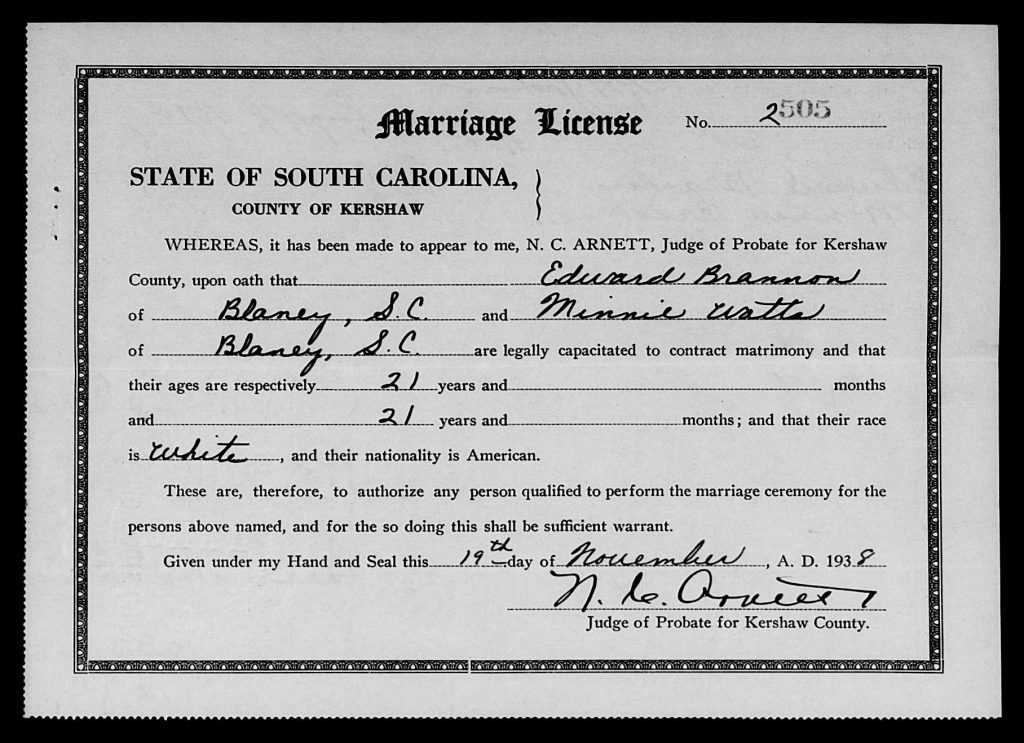 Marriage License No. 2505
STATE OF SOUTH CAROLINA,
COUNTY OF KERSHAW
WHEREAS, it has been made to appear to me, N. C. ARNETT, Judge of Probate for Kershaw
County, upon oath that Edward Brannon
of Blaney, S.C. and Minnie Watts
of Blaney, S.C. are legally capacitated to contract matrimony and that
their ages are respectively 21 years and months
and 21 years and months; and that their race
is White, and their nationality is American.
These are, therefore, to authorize any person qualified to perform the marriage ceremony for the
persons above named, and for the so doing this shall be sufficient warrant.
Given under my Hand and Seal this 19th day of November, A. D. 1938
N. C. Arnett
Judge of Probate for Kershaw County.